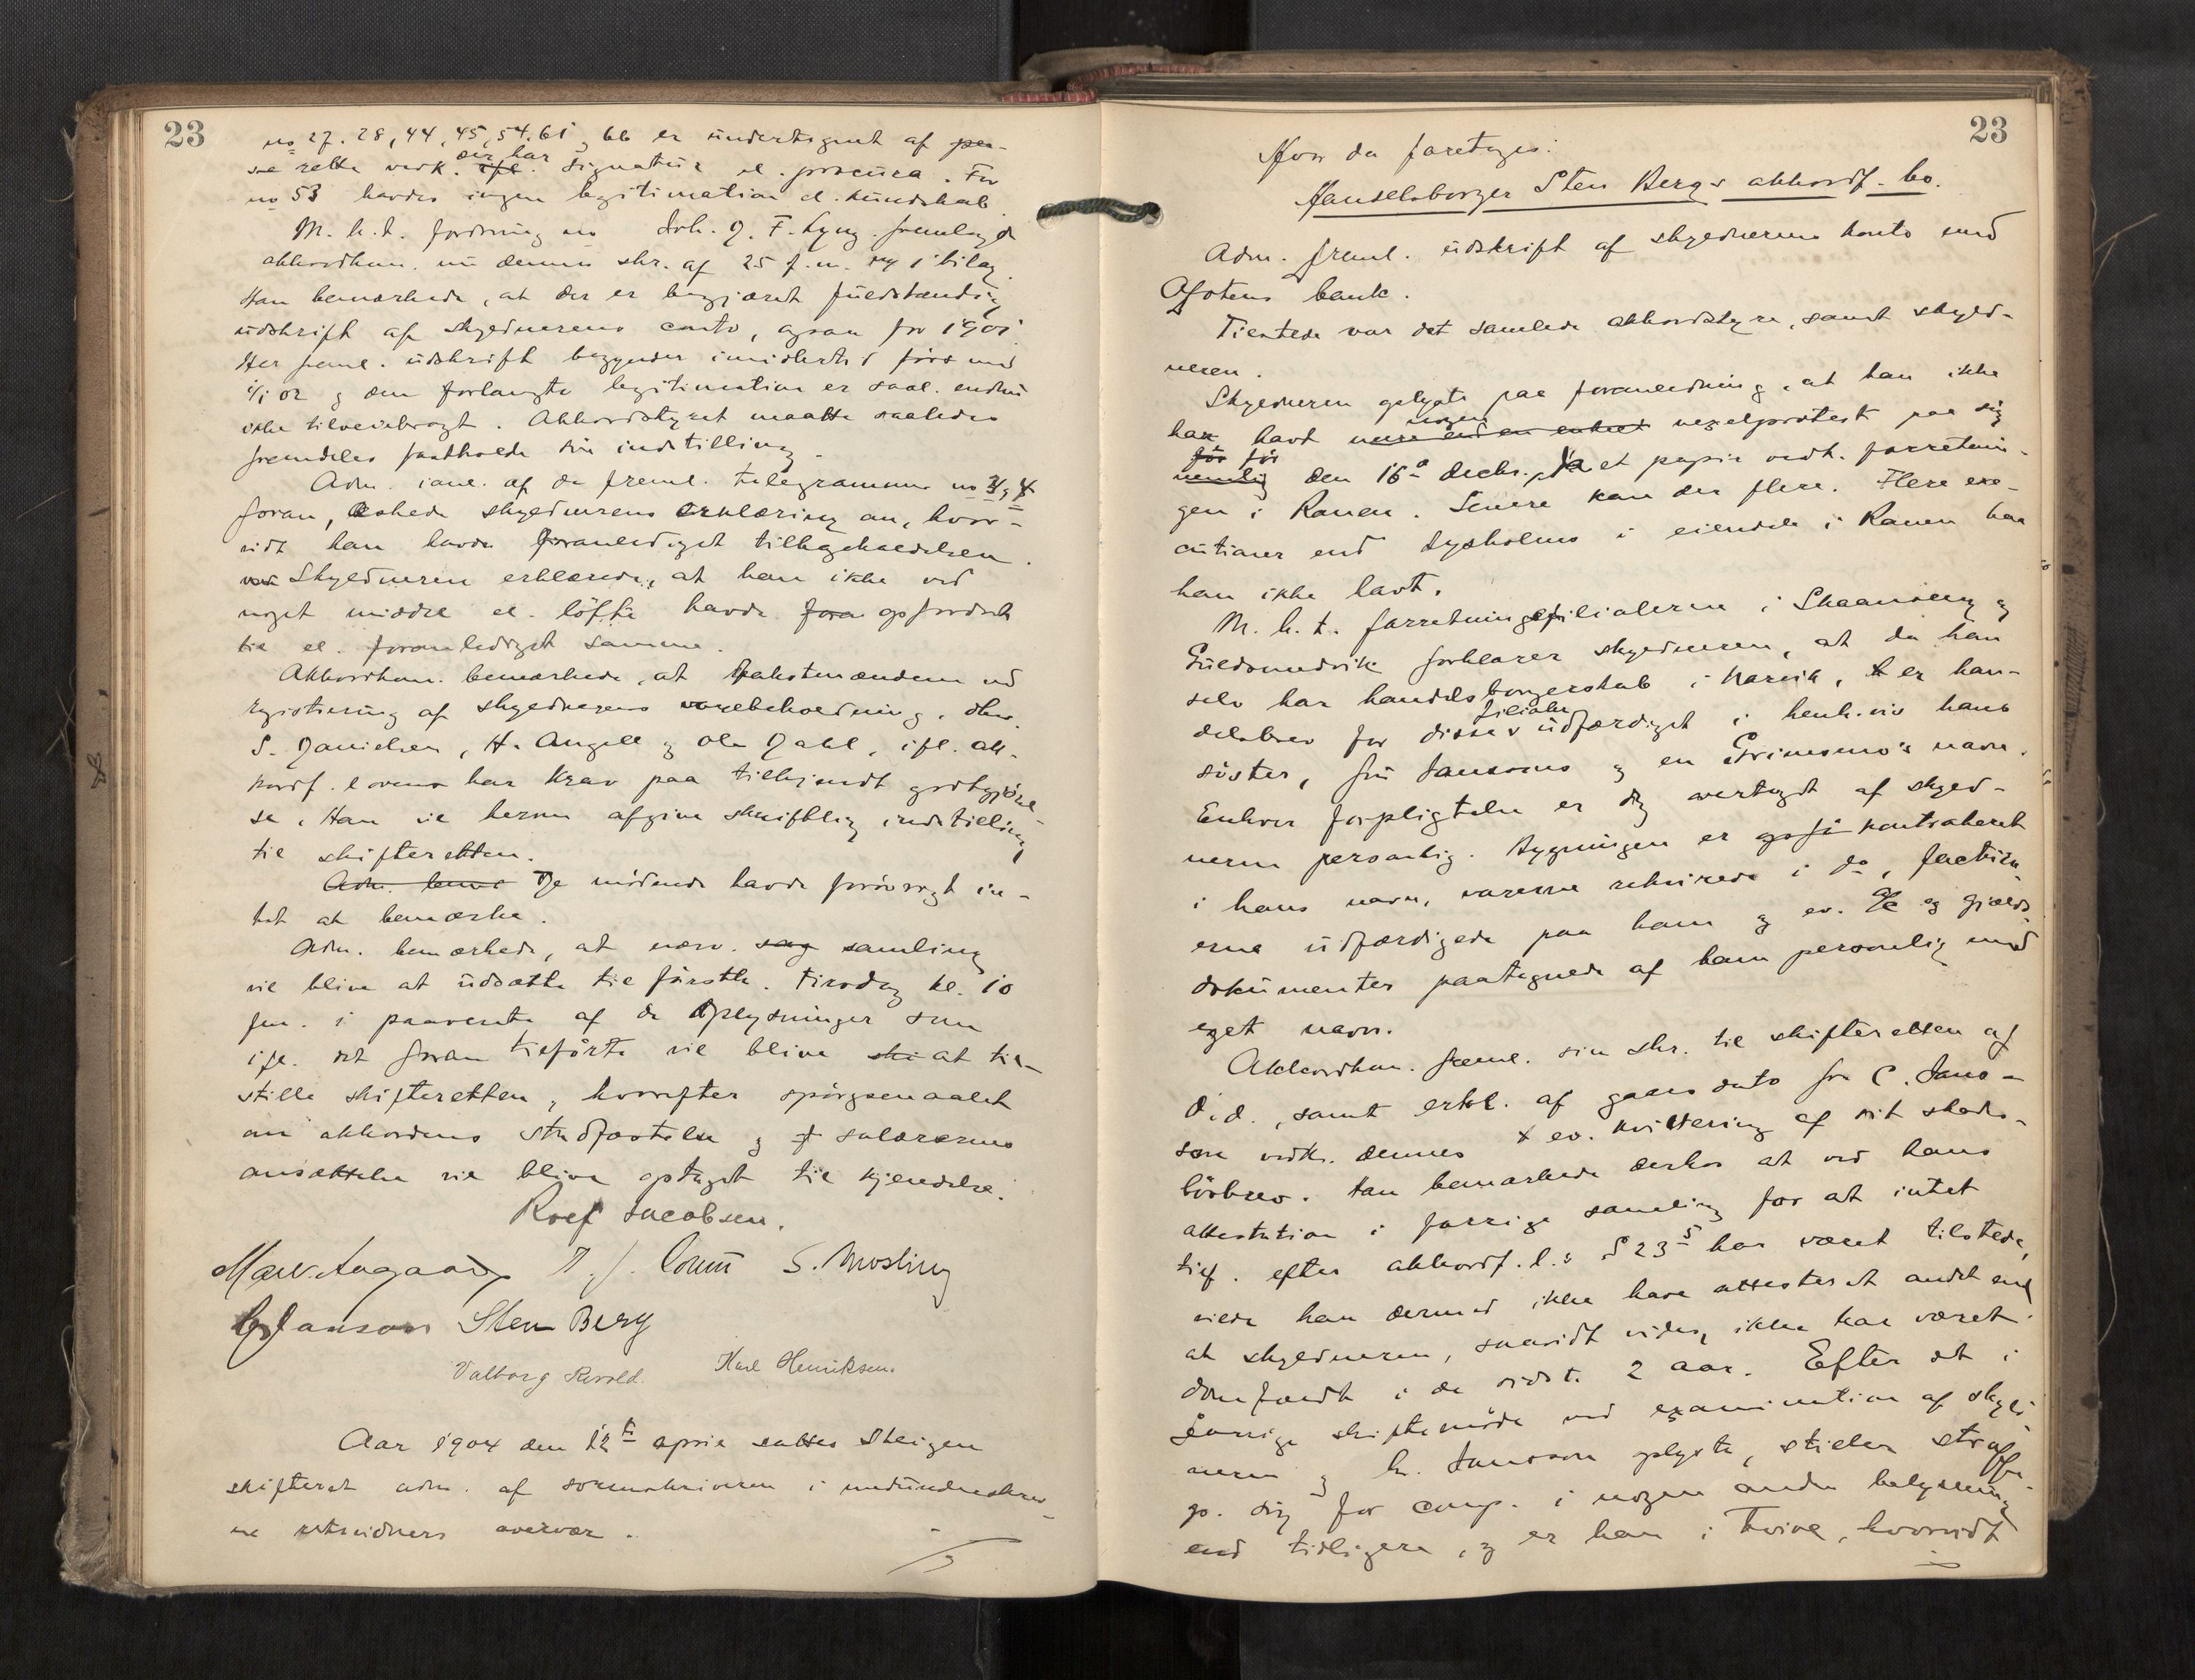 23
no 27. 28, 44, 45, 54. 61, 66 er undertegnet af per-
ne rette vedk. der har ifl. signatur el. procura. For
no 53 havdes ingen legitimation el. kundskab.
M. h. t. fordring no Joh. J. F. Lyng fremlagde
akkordkom. nu dennes skr. af 25 f. m. m/ 1 bilag.
Han bemærkede, at der er begjæret fuldstændig
udskrift af skyldnerens conto, ogsaa for 1901.
Her freml. udskrift begynder imidlertid først med
1/1 02 og den forlangte legitimation er saal. endnu
ikke tilveiebragt. Akkordstyret maatte saaledes
fremdeles fastholde sin indstilling.
Adm. ianl. af de freml. telegrammer no 3 & 4
foran, æskede skyldnerens erklæring om, hvor-
vidt han havde foranlediget tilbageholdelsen.
Skyldneren erklærede, at han ikke ved
noget middel el. löfte havde fora opfordret
til el. foranlediget samme.
Akkordkom. bemærkede, at takstmændene ved
registrering af skyldnerens varebeholdning,
S. Danielsen, H. Angell & Ole Dahl, ifl. ak-
kordf. lovens har krav paa tilkjendt godtgjörel-
se. Han vil herom afgive skriftlig indstilling
til skifteretten.
Adm. bem De mödende havde forövrigt in-
tet at bemærke.
Adm. bemærkede, at nærv. sag samling
vil blive at udsætte til förstk. tirsdag kl. 10
fm. i paavente af de oplysninger som
ifl. det foran tilförte vil blive ski at til-
stille skifteretten, hvorefter spörgsmaalet
om akkordens stadfæstelse og salærernes
ansættelse vil blive optaget til kjendelse.
Rolf Jacobsen.
Marv. Aagaard S. Mosling
Janson Sten Berg
Valborg Karl Henriksen.
Aar 1904 den 12te april sattes Steigen
skifteret adm. af sorenskriveren i medundersrev-
ne retsvidners overvær.
23
Hvor da foretages:
Handelsborger Sten Bergs akkordf. bo.
Adm. freml. udskrift af skyldnerens konto med
Ofotens bank.
Tilstede var det samlede akkordstyre, samt skyld-
neren.
Skyldneren oplyste paa foranledning, at han ikke
har havt mere end en enkelt nogen vexelprotest paa sig
för för
nemlig den 16de decbr. paa et papir vedk. forretnin-
gen i Ranen. Senere kom der flere. Flere exe-
cutioner end Lysholms i eiendele i Ranen har
han ikke havt.
M. h. t. forretningsfilialerne i Skaanseng og
Guldsmedvik forklarer skyldneren, at da han
selv har handelsborgerskab i Narvik, er han-
delsbrev for disse filialer udfærdiget i henh.vis hans
söster, fru Jansons og en Grimsmo's navn.
Enhver forpligtelse er dog overtaget af skyld-
neren personlig. Bygningen er opfi kontraheret
i hans navn, varerne rekvirede i do, factura-
erne udfærdigede paa ham og ev. og gjælds
dokumenter paategnede af ham personlig med
eget navn.
Akkordkom. freml. sin skr. til skifteretten af
d. d., samt erkl. af gaars dato fra C. Jans-
son vedk. dennes ev. kvittering af sit skades-
lösbrev. Han bemærkede derhos at ved hans
attestation i forrige samling for at intet
tilf. efter akkordf. l.s § 23 5 har været tilstede,
vilde han dermed ikke have attesteret andet end
at skyldneren, saavidt vides, ikke har været
domfældt i de sidste 2 aar. Efter det i
forrige skiftemöde ved examination af skyld-
neren og h. Jansson oplyste, stiller
sig for comp. i nogen anden belysning
end tidligere, og er han i tvivl, hvorvidt